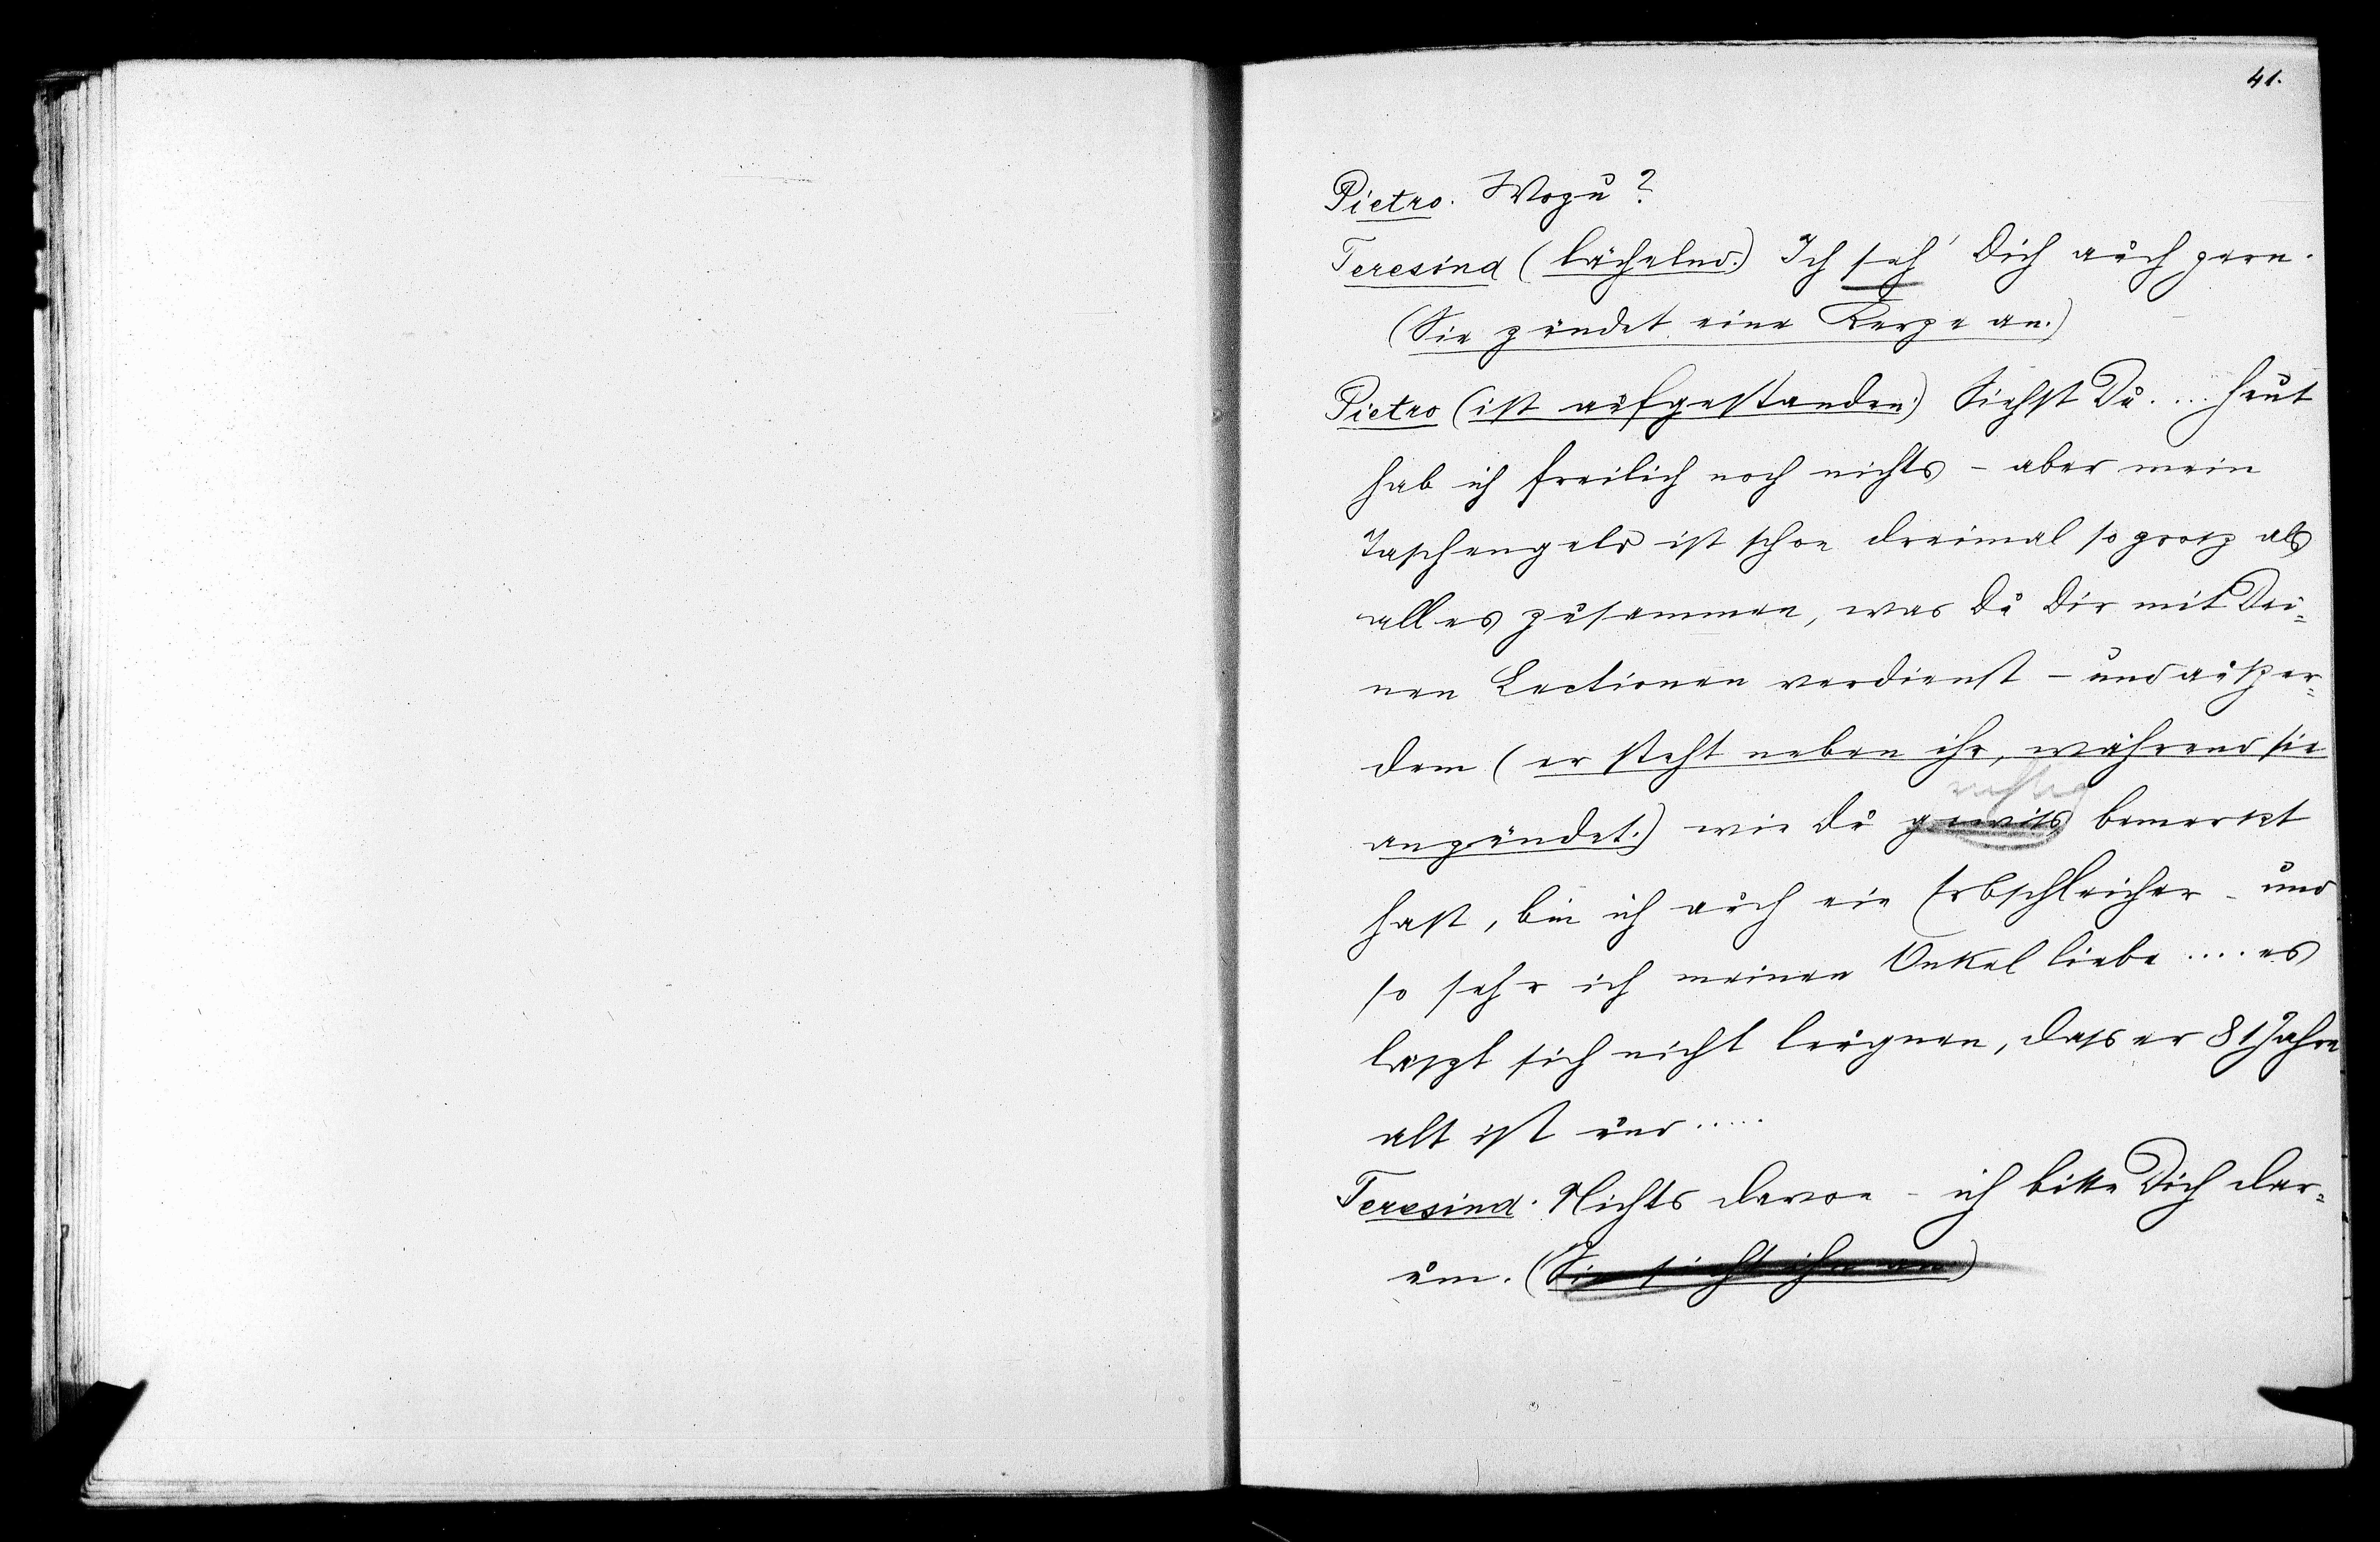 41.
Pietro. Wozu?
Teresina (lächelnd.) Ich seh' Dich auch gern.
(Sie zündet eine Kerze an.)
Pietro (ist aufgestanden.) Siehst Du.... heut
hab ich freilich noch nichts – aber mein
Taschengeld ist schon dreimal so grosz als
alles zusammen, was Du Dir mit Dei=
nen Lectionen verdienst – und auszer=
dem (er steht neben ihr, während sie
anzündet.) wie Du gewiss bemerkt
hast, bin ich auch ein Erbschleicher – und
so sehr ich meinen Onkel liebe .... es
läszt sich nicht leugnen, dass er 81 Jahre
alt ist und .....
Teresina. Nichts davon – ich bitte Dich dar=
um. (Sie sieht ihn an)